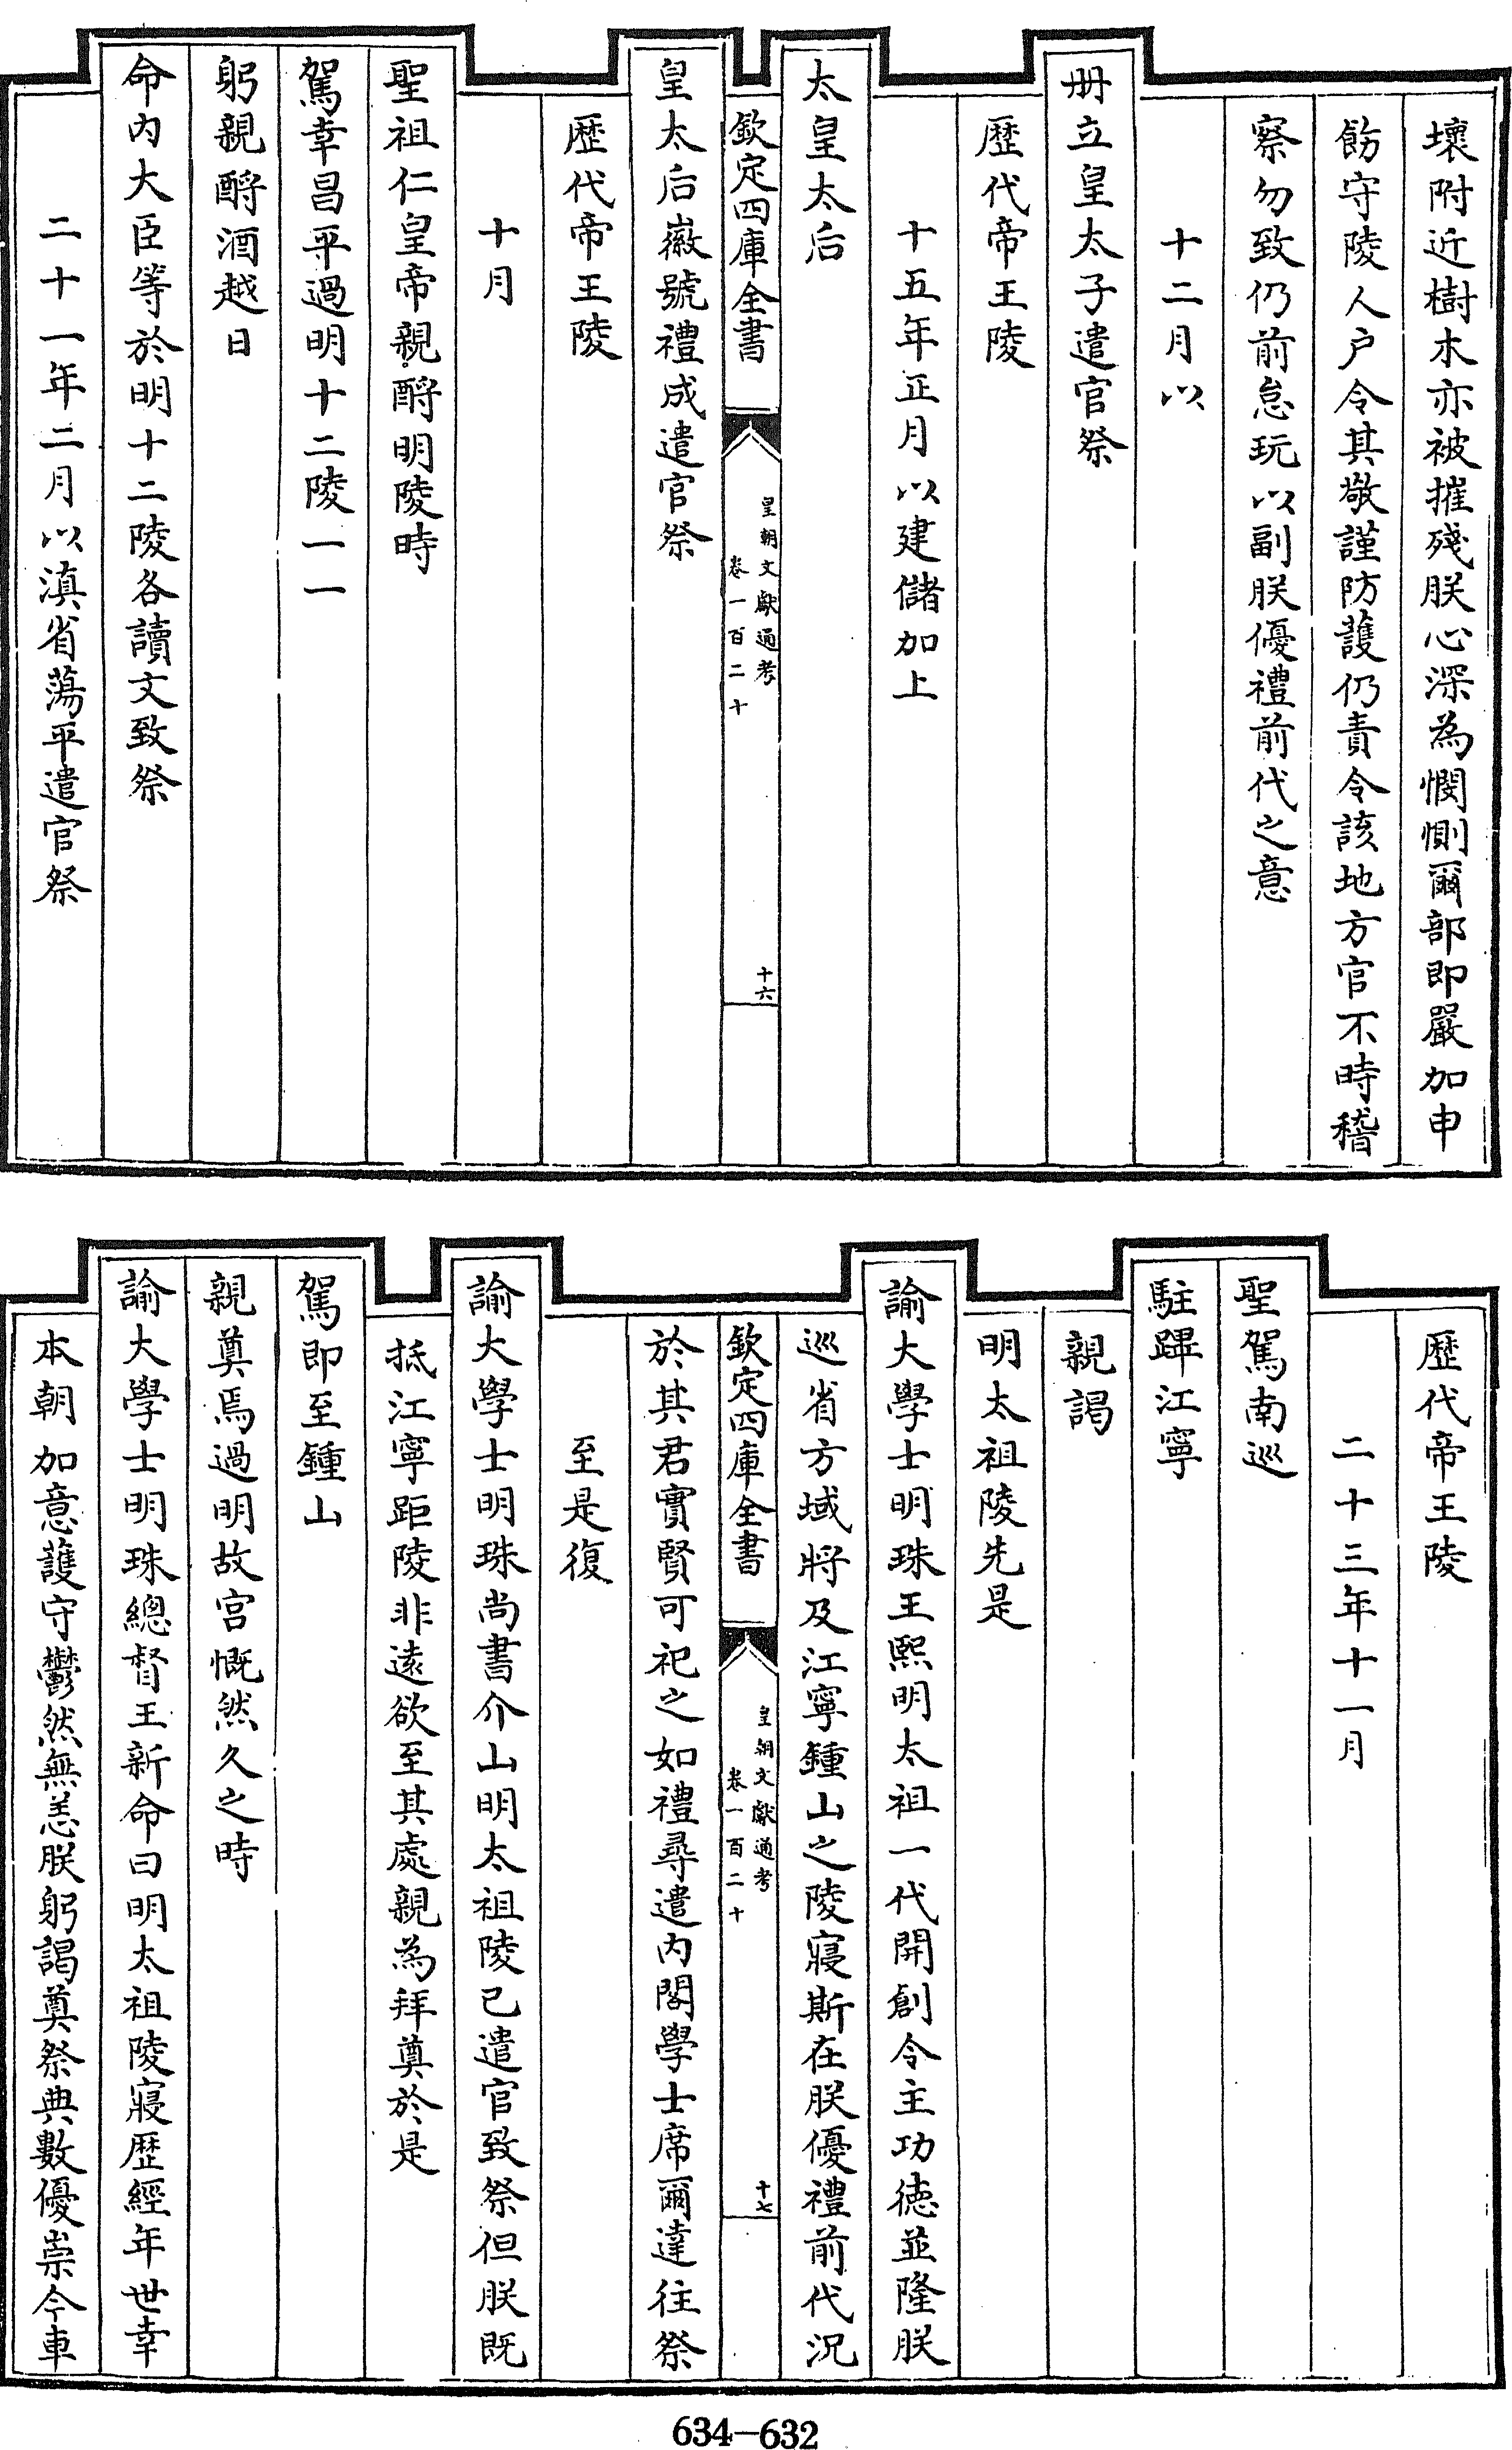 壞附近樹木亦被摧殘朕心深為憫惻爾部即嚴加申
飭守陵人户令其敬謹防護仍責令該地方官不時稽
察勿致仍前怠玩以副朕優禮前代之意
十二月以
冊立皇太子遣官祭
歷代帝王陵
十五年正月以建儲加上
太皇太后
欽定四庫全書
皇朝文獻通考
卷一百二十
十六
皇太后徽號禮成遣官祭
歷代帝王陵
十月
聖祖仁皇帝親酹明陵時
駕幸昌平過明十二陵一一
躬親酹酒越日
命内大臣等於明十二陵各讀文致祭
二十一年二月以滇省蕩平遣官祭
歷代帝王陵
二十三年十一月
聖駕南巡
駐蹕江寧
親謁
明太祖陵先是
諭大學士明珠王熙明太祖一代開創令主功徳並隆朕
巡省方域將及江寧鍾山之陵寢斯在朕優禮前代況
欽定四庫全書
皇朝文獻通考
卷一百二十
十七
於其君實賢可祀之如禮尋遣内閣學士席爾達往祭
至是復
諭大學士明珠尚書介山明太祖陵已遣官致祭但朕既
抵江寧距陵非遠欲至其處親為拜奠於是
駕即至鍾山
親奠焉過明故宫慨然久之時
諭大學士明珠總督王新命曰明太祖陵寢歴經年世幸
本朝加意護守鬱然無恙朕躬謁奠祭典數優崇今車
634-632